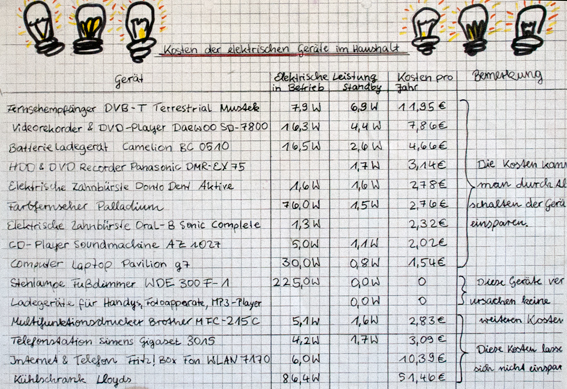 Kosten der elektrischen Geräte im Haushalt
Gerät Elektrische Leistung Kosten pro Bemerkung
in Betrieb Standby Jahr
Fernsehempfänger DVB-T Terrestrial Mustek 7,9 W 6,9 W 11,95 €
Videorekorder & DVD-Player Daewoo SD-7800 16,3 W 4,4 W 7,86 €
Batterieladegerät Camelion BC 0510 16,5 W 2,6 W 4,66 €
HDD & DVD Recorder Panasonic DMR-EX 75 1,7 W 3,14 € Die Kosten kann
Elektrische Zahnbürste Donto Dent Aktive 1,6 W 1,6 W 2,78 € man durch
Farbfernseher Palladium 76,0 W 1,5 W 2,76 € schalten der Gerä
Elektrische Zahnbürste Oral-B Sonic Complete 1,3 W 2,32 € einsparen.
CD-Player Soundmachine AZ 1027 5,0 W 1,1 W 2,02 €
Computer Laptop Pavilion g7 30,0 W 0,8 W 1,54 €
Stehlampe Fußdimmer WDE 300 F-1 225,0 W 0,0 W 0 Diese Geräte ver
Ladegeräte für Handys, Fotoapparate, MP3-Player 0,0 W 0 ursachen keine
Multifunktionsdrucker Brother MFC-215C 5,1 W 1,6 W 2,83 € weiteren Kosten
Telefonstation Simens Gigaset 3015 4,2 W 1,7 W 3,09 €
Internet & Telefon Fritz! Box Fon WLAN 7170 6,0 W 10,39 € Diese Kosten lasse
Kühlschrank Lloyds 86,4 W 51,46 € sich nicht einspar